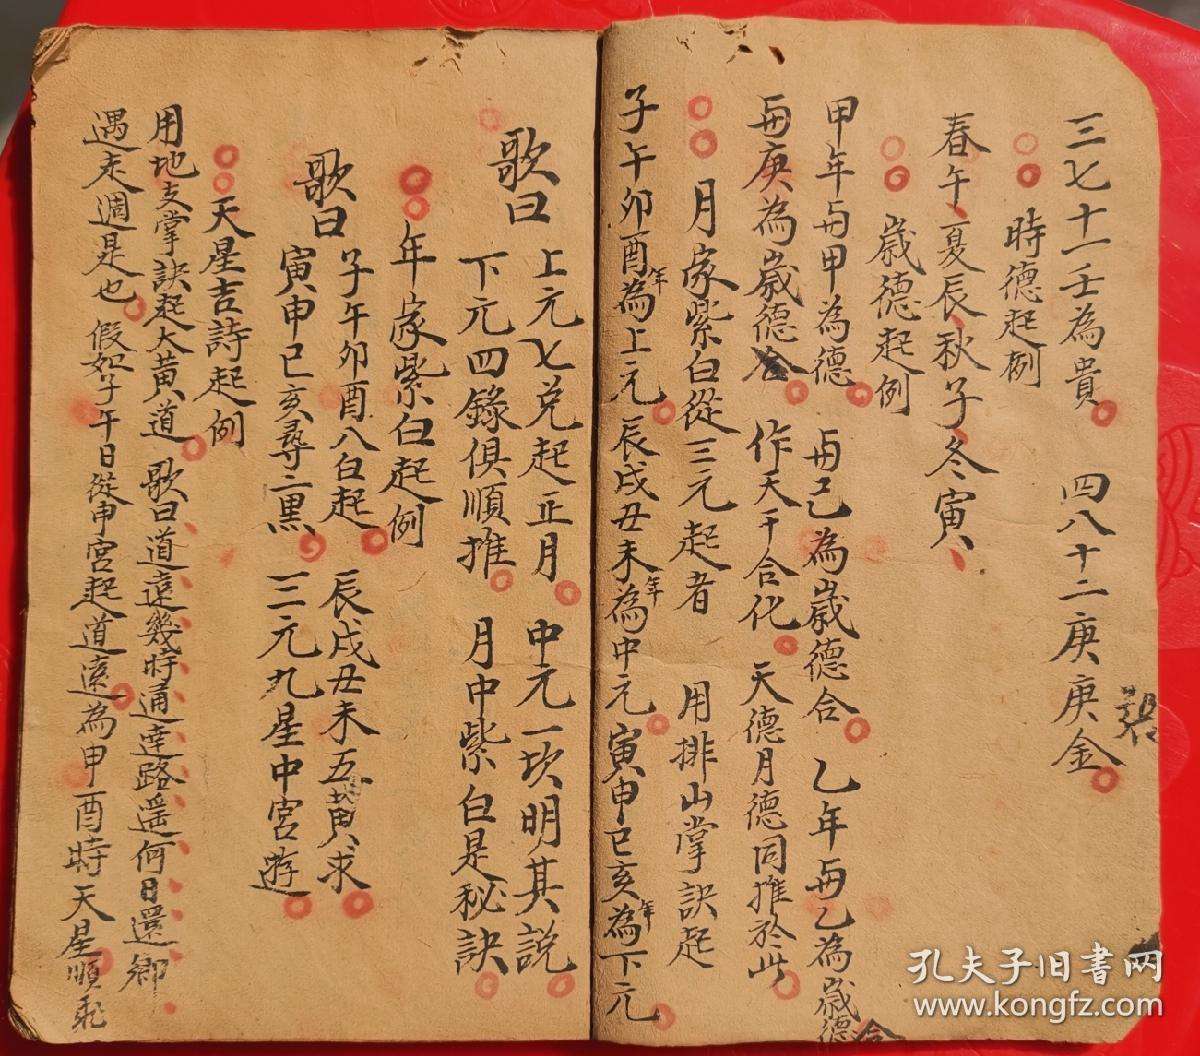 三七十一壬為貴 四八十二庚庚金
時德起例
春午夏辰秋子冬寅
歲德起例
甲年与甲為德 与己為歲德合 乙年与乙為歲德合
与庚為歲德合 作天干合化 天德月德同推於此
月家紫白從三元起者 用排山掌訣起
子午卯酉年為上元 辰戌丑未年為中元 寅申巳亥年為下元
歌曰 上元七兌起正月 中元一坎明其說
下元四錄俱順推 月中紫白是秘訣
年家紫白起例
歌曰 子午卯酉八白起 辰戌丑未五黃求
寅申巳亥尋二黑 三元九星中宮遊
天星吉詩起例
用地支掌訣起大黃道 歌曰道遠幾時通達路遥何日還鄉
遇走週是也 假如子午日從申宮起道遠為申酉時天星順
孔夫子旧書网
www.kongfz.com